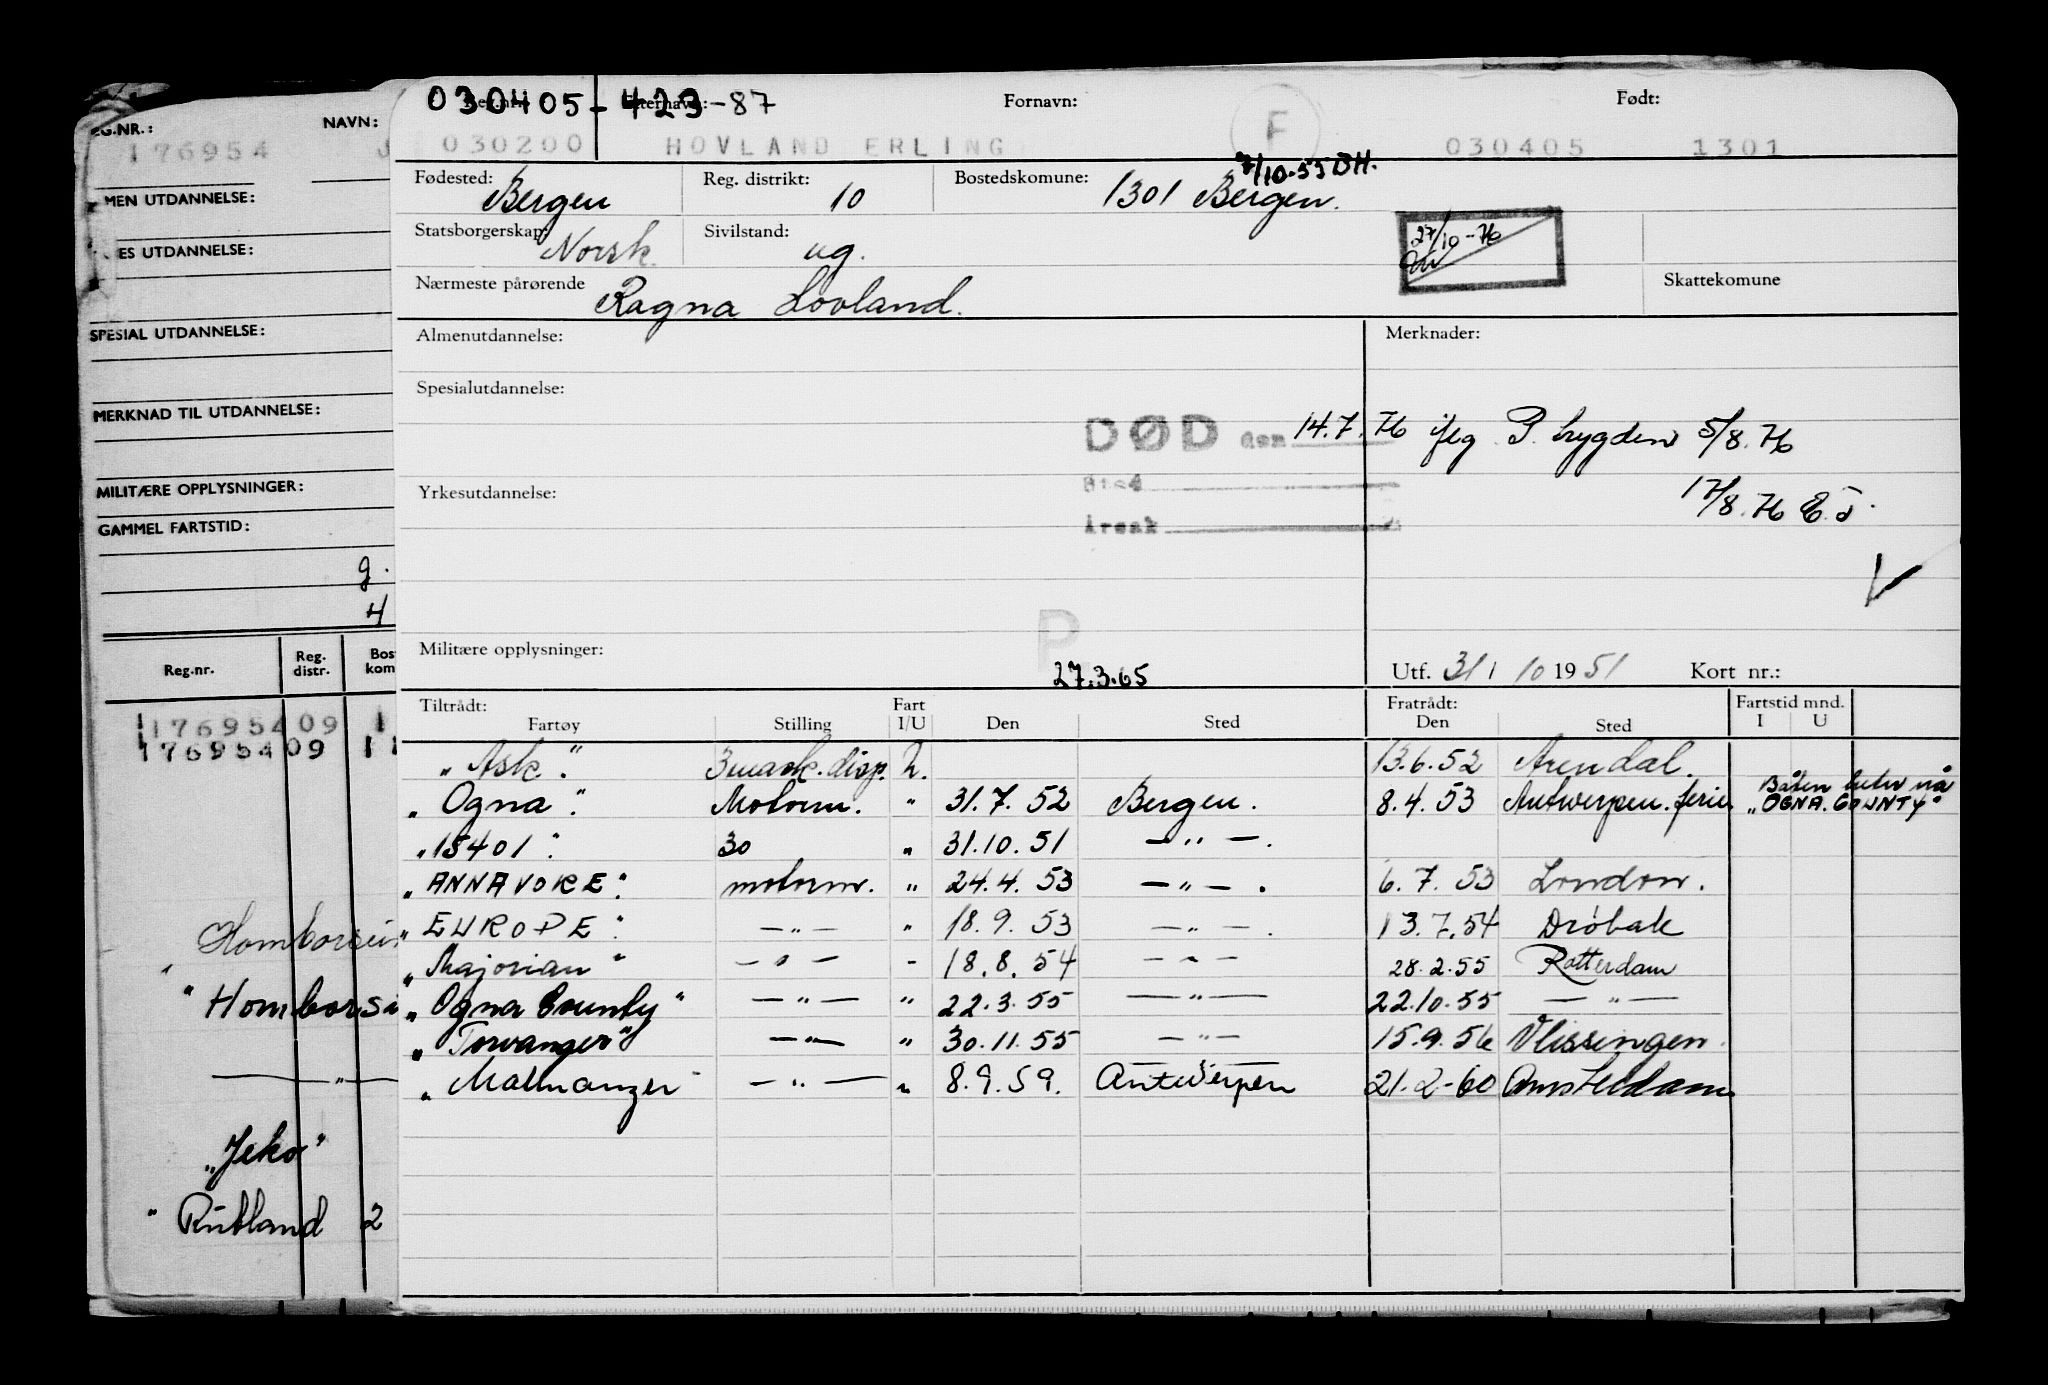 030405-423-87
Reg.nr. Etternavn: Fornavn: Født:
030200 HOVLAND ERLING F 030405 1301
Fødested: Bergen Reg. distrikt: 10 Bostedskomune: 1301 Bergen. 7/10-55 BH.
Statsborgerskap: Norsk. Sivilstand: ug.
27/10-76
Nærmeste pårørende Ragna Hovland. Skattekomune
Almenutdannelse: Merknader:
Spesialutdannelse:
DØD den 14.7.76 iflg P. trygden 5/8.76
Sted
Yrkesutdannelse: 17/8.76 E.J.
Årsak
P
Militære opplysninger: 27.3.65 Utf. 31/10 1951 Kort nr.:
Tiltrådt: Fart Fratrådt: Fartstid mnd.
Fartøy Stilling I/U Den Sted Den Sted I U
"Ask". 3 mask. disp. U. 13.6.52 Arendal.
"Ogna". Motorm. " 31.7.52 Bergen. 8.4.53 Antwerpen. ferie Båten heter nå "OGNA. COUNTY"
"15401". 30 " 31.10.51 — " —.
"ANNAVORE". motorm. " 24.4.53 — " —. 6.7.53 London.
"EUROPE". — " — " 18.9.53 — " —. 13.7.54 Drøbak
"Majorian" — " — - 18.8.54 — " — 28.2.55 Rotterdam
"Ogna County" — " — " 22.3.55 — " — 22.10.55 — " —
"Torvanger" — " — " 30.11.55 — " — 15.9.56 Vlissingen.
"Malmanger — " — " 8.9.59. Antwerpen 21.2-60 Amsterdam
EG.NR.: NAVN:
176954 J
MEN UTDANNELSE:
ES UTDANNELSE:
SPESIAL UTDANNELSE:
MERKNAD TIL UTDANNELSE:
MILITÆRE OPPLYSNINGER:
GAMMEL FARTSTID:
g.
4
Reg.nr. Reg. distr. Bos kom
176954 09 1
176954 09 11
Homborsun
"Homborsu
— " —
"Jeko"
"Rutland 2